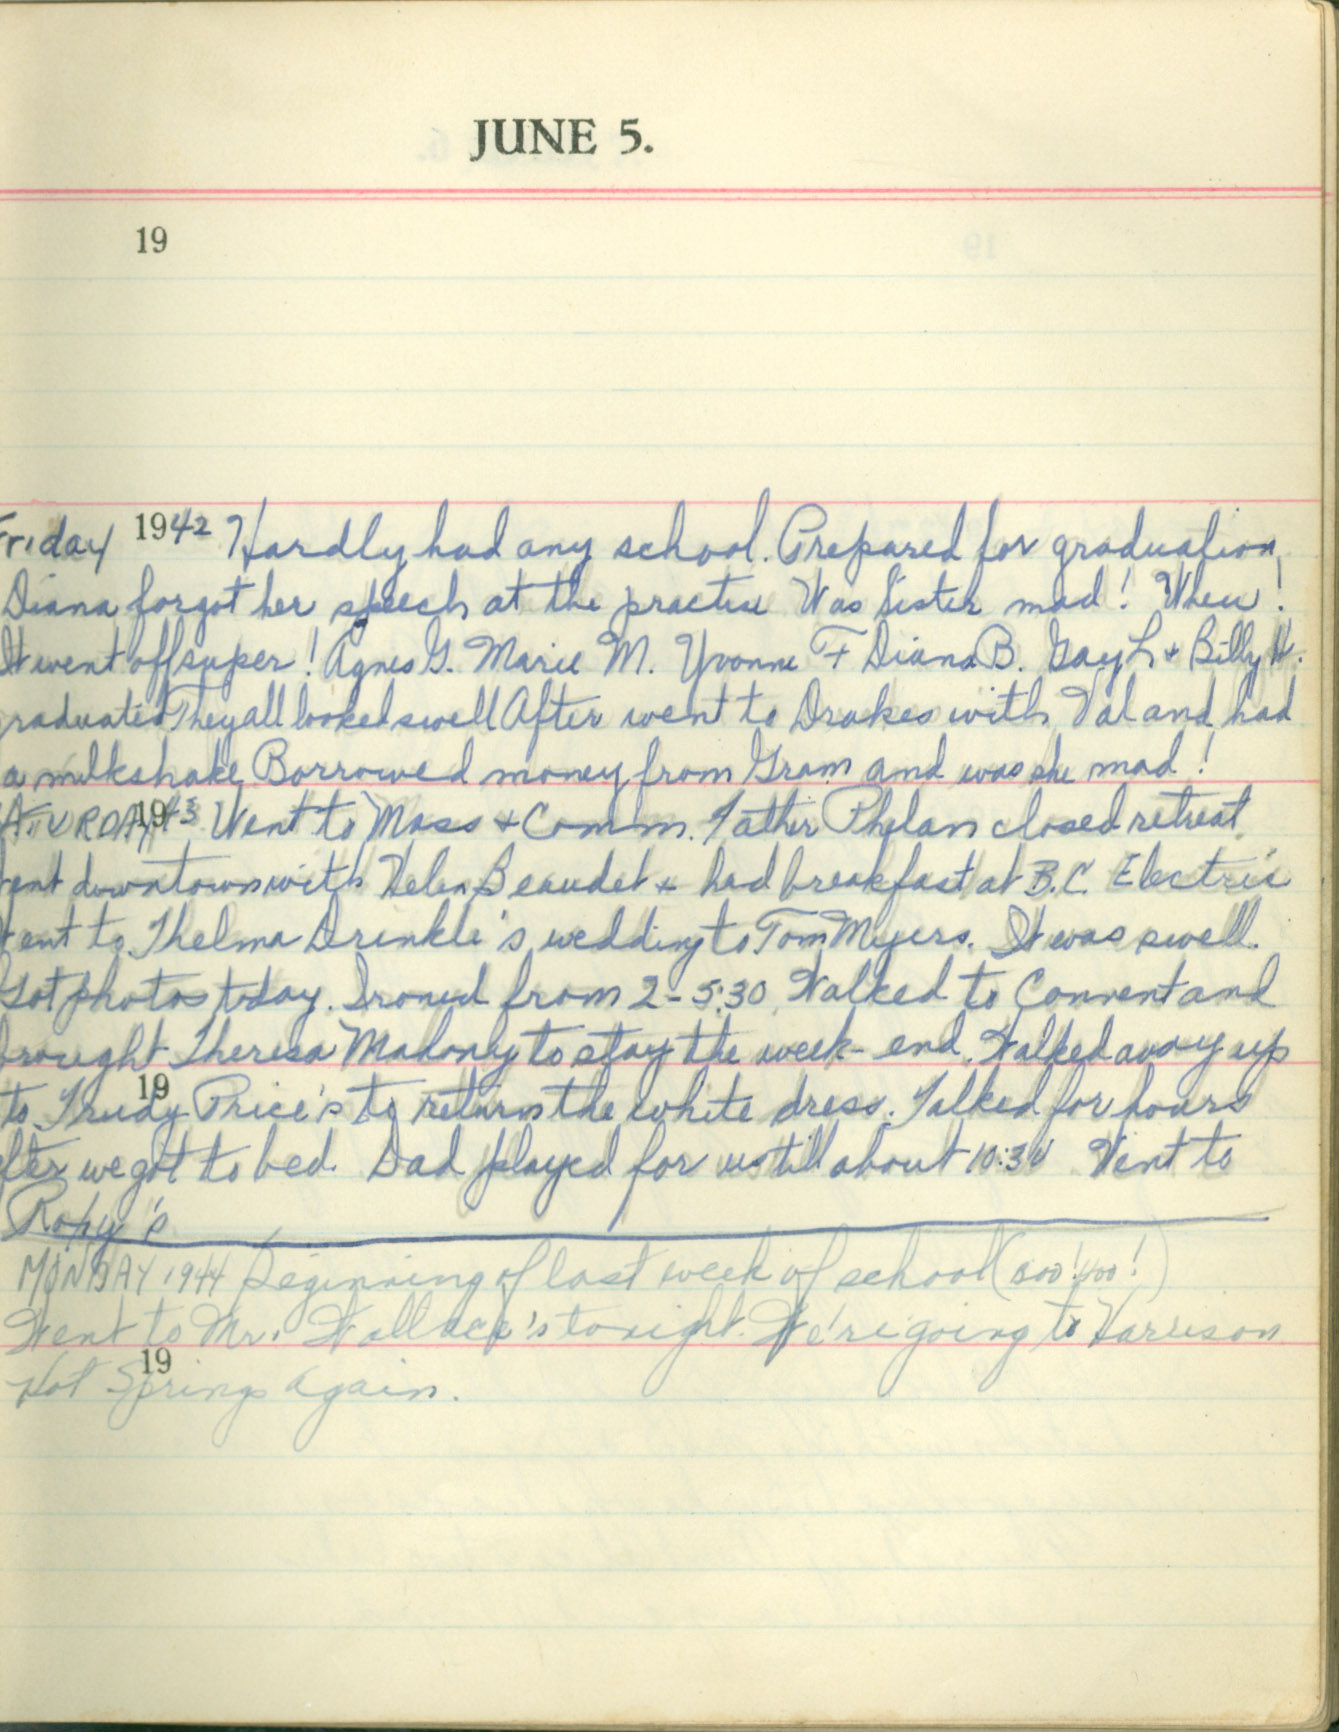 JUNE 5.
19
Friday 1942 Hardly had any school. Prepared for graduation,
Diana forgot her speech at the practise Was Sister mad! Wheu!
It went off super! Agnes G. Marie M. Yvonne F Diana B. Gay L + Billy H.
graduated They all looked swell After went to Drakes with Val and had
a milkshake Borrowed money from Gram and was she mad!
SATURDAY 1943 Went to Mass + Comm. Father Phelan closed retreat
Went downtown with Helen Beaudet + had breakfast at B.C. Electric
Went to Thelma Drinkle's wedding to Tom Myers. It was swell.
Got photos today. Ironed from 2-5:30. Walked to Convent and
brought Theresa Mahony to stay the week-end. Walked away up
19
to Trudy Price's to return the white dress. Talked for hours
after we got to bed. Dad played for us till about 10:30 Went to
MONDAY 1944 Beginning of last week of school (boo! hoo!)
Went to Mr. Wallace's tonight. We're going to Harrison
19
Hot Springs again.